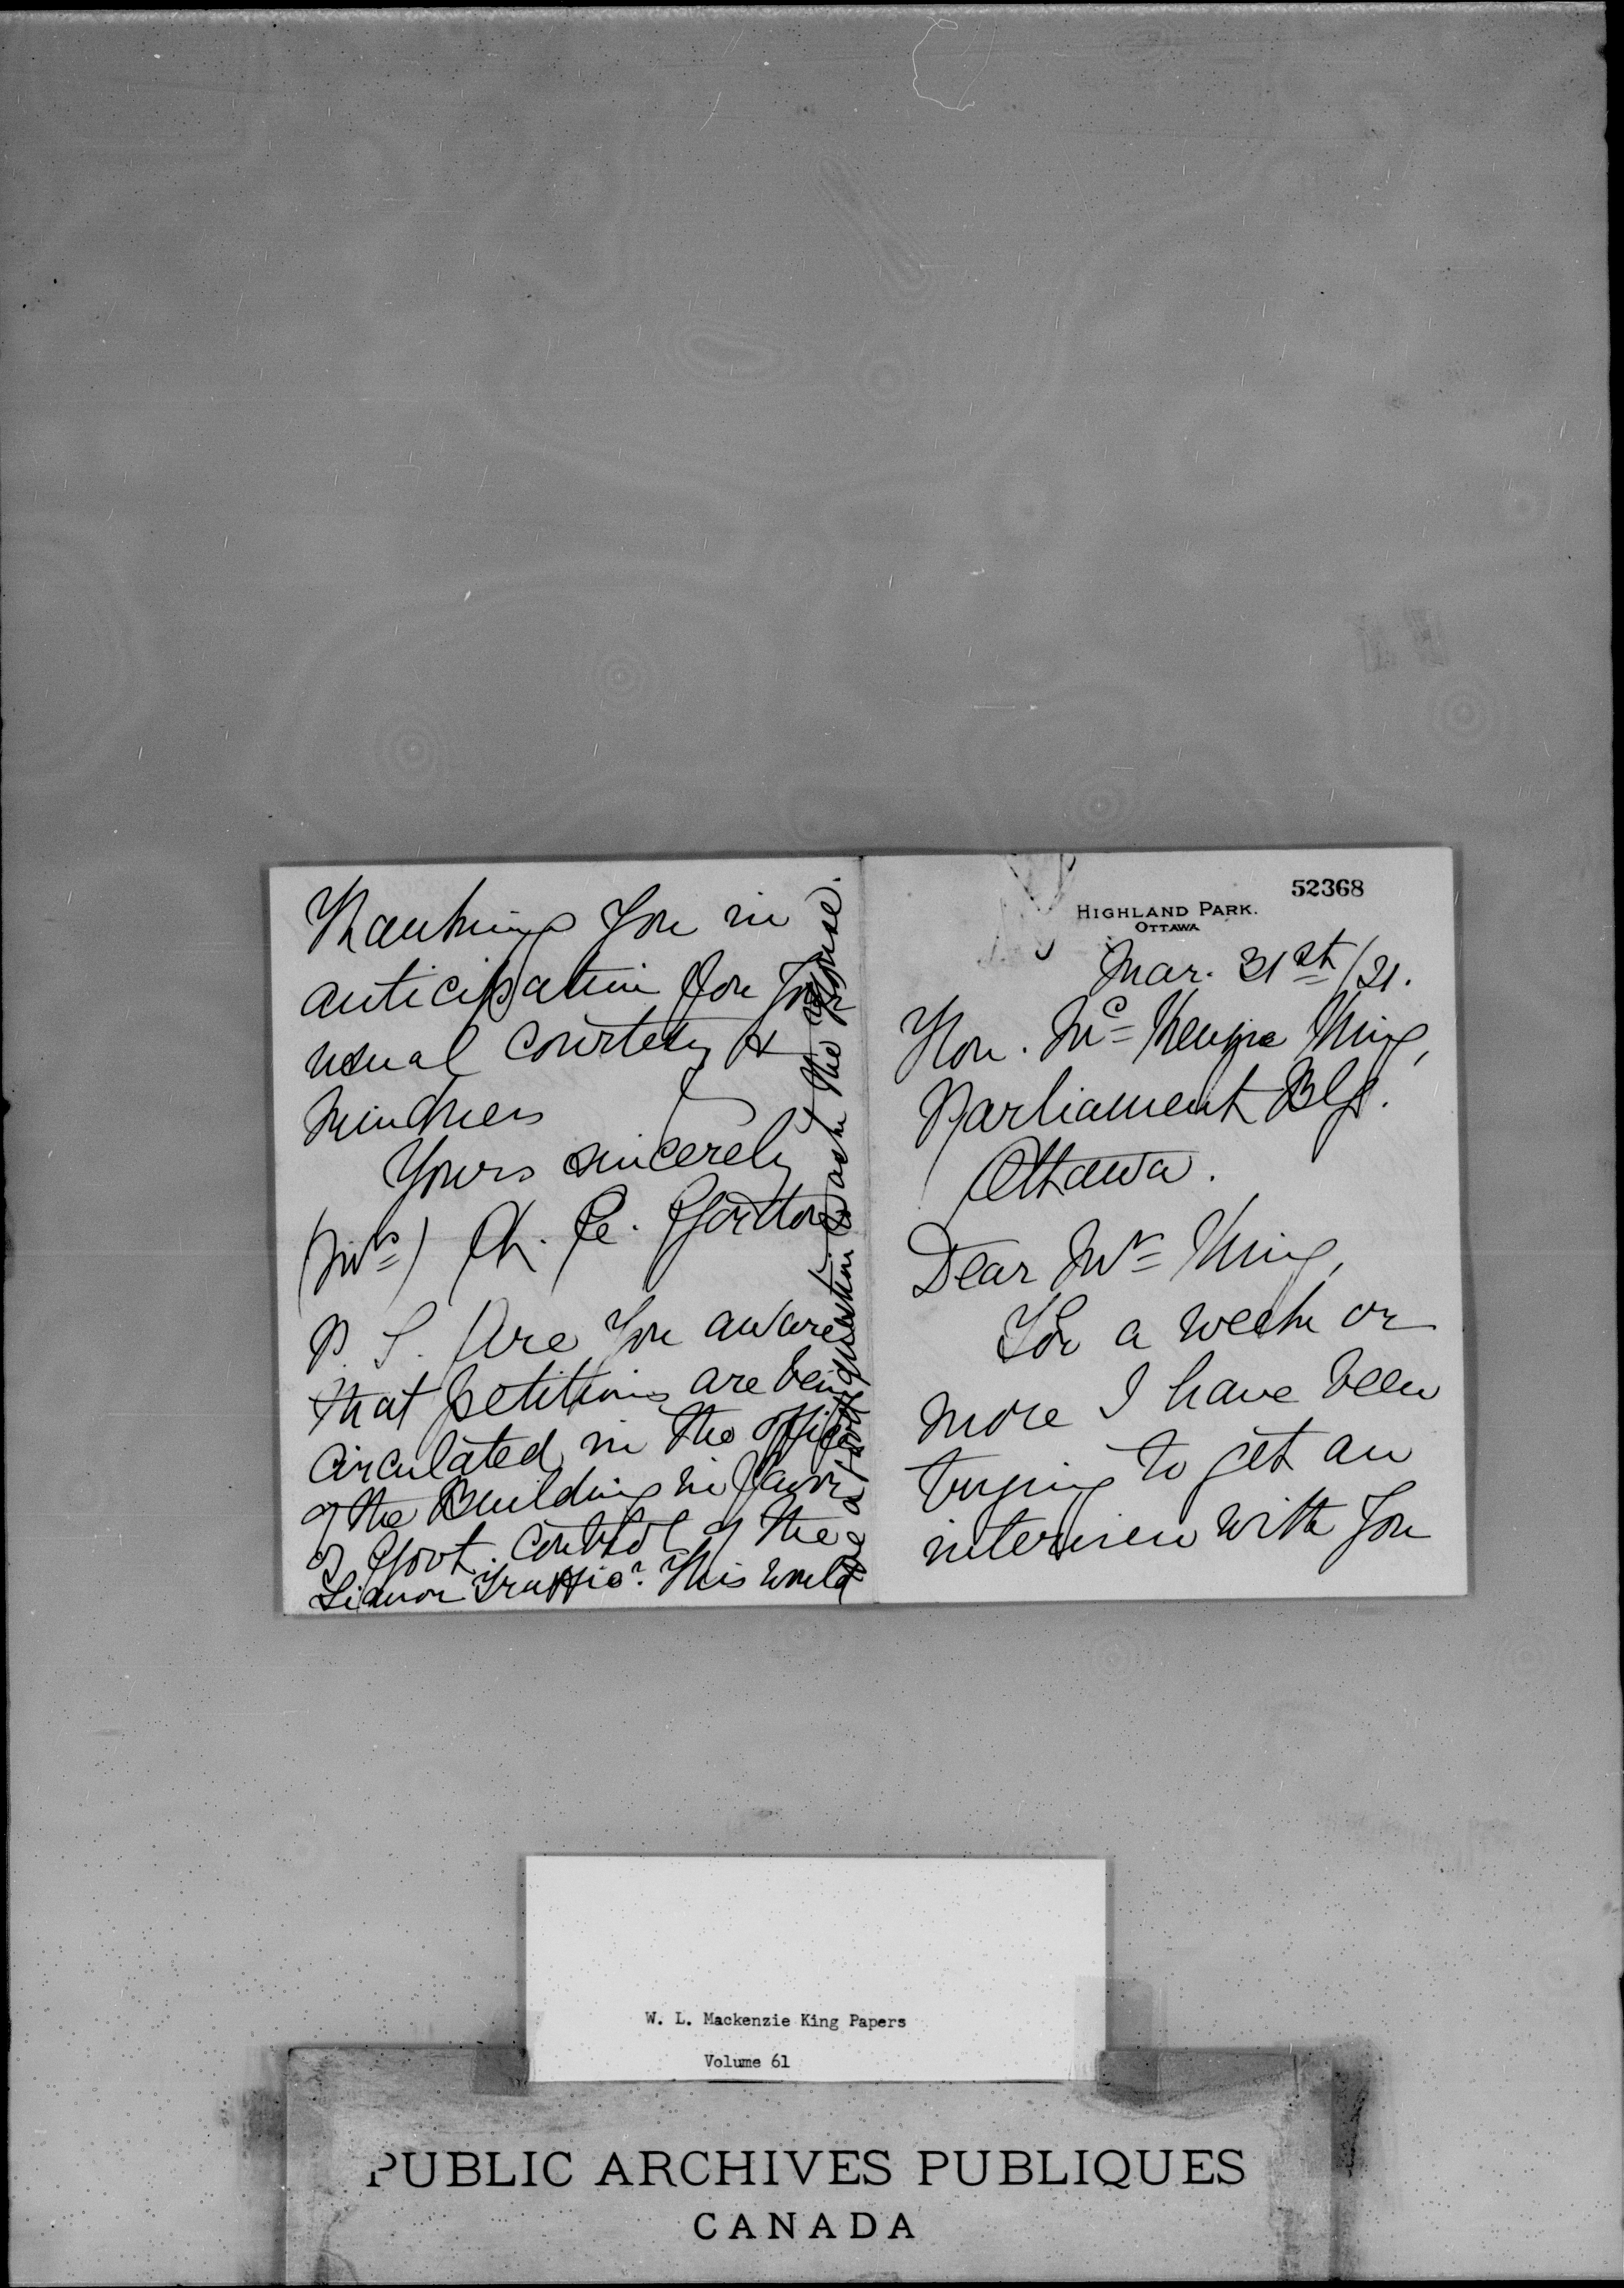 52368
HIGHLAND PARK.
OTTAWA
Mar. 31st/21.
Hon. Mc Kenzie King,
Parliament Blg.
Ottawa.
Dear Mr King,
For a week or
more I have been
trying to get an
interview with you
Thanking you in
anticipation for your
usual courtesy &
kindness
Yours sincerely
(Mrs)
P.S. Are you aware
that petitions are being
circulated in the offices
of the Building in favor
of Govt. control of the
Liquor Traffic? This would
be a good question to ask the House.
W. L. Mackenzie King Papers
Volume 61
PUBLIC ARCHIVES PUBLIQUES
CANADA